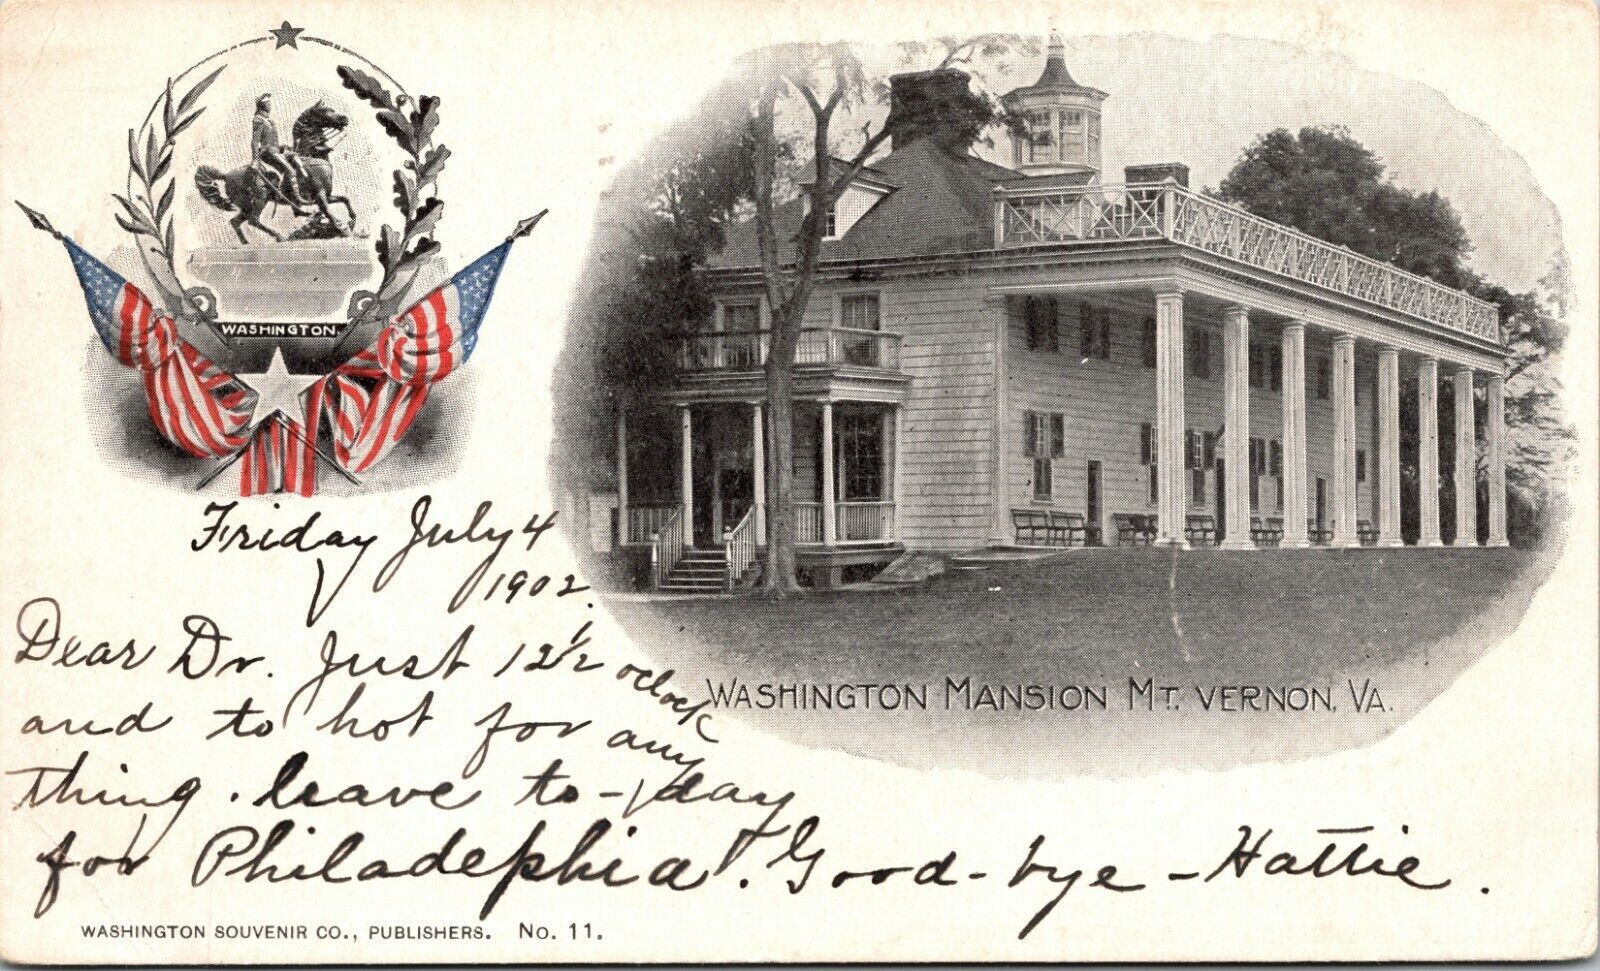 WASHINGTON.
WASHINGTON MANSION MT. VERNON, VA.
Friday July 4
1902.
Dear Dr. Just 12 1/2 oclock
and to hot for any
thing. leave to-day
for Philadephia. Good-bye - Hattie.
WASHINGTON SOUVENIR CO., PUBLISHERS. No. 11.